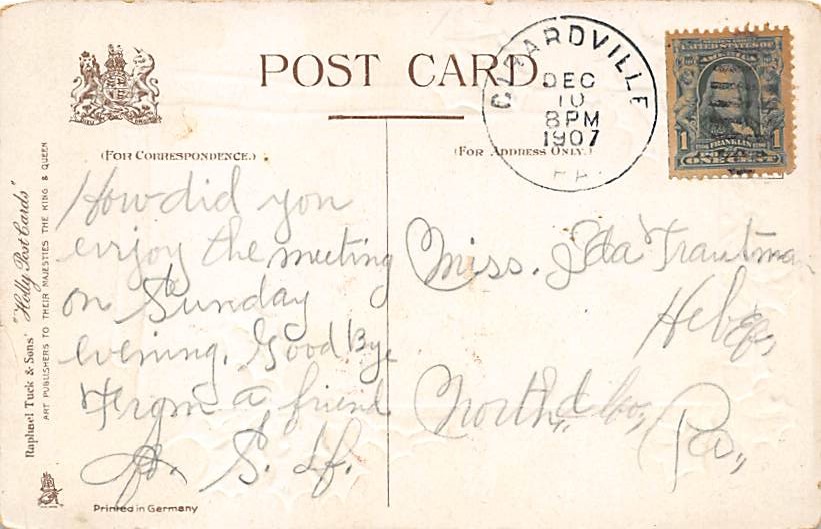 POST CARD
GIRARDVILLE
DEC
10
8PM
1907
PA.
UNITED STATES OF
AMERICA
1 FRANKLIN 1
ONE CENT
(FOR CORRESPONDENCE.)
(FOR ADDRESS ONLY.)
How did you
enjoy the meeting
on Sunday
evening. Good Bye
From a friend
S.
Miss. Ida Trautman
Heb
North'd Co., Pa.,
Raphael Tuck & Sons' "Holly Post Cards"
ART PUBLISHERS TO THEIR MAJESTIES THE KING & QUEEN
Printed in Germany